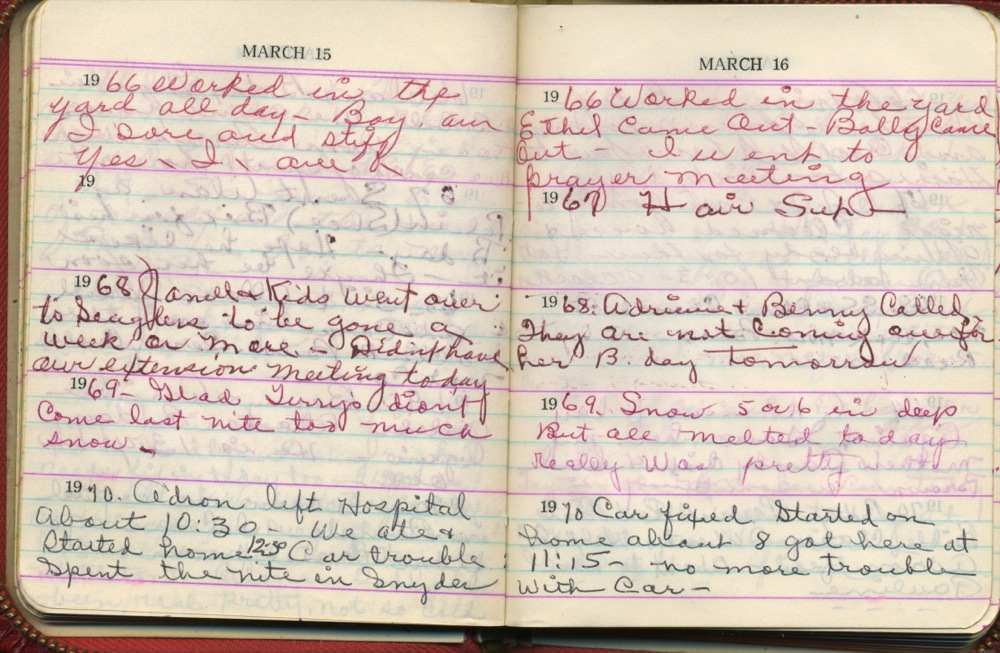 MARCH 15
1966 Worked in the
yard all day - Boy am
I sore and stiff
Yes I am
19
1968 Janell & Kids went over
to to be gone a
week or more - Didn't have
our extension meeting today
1969 - Glad Terrys didn't
come last nite too much
snow -
1970. Adron left Hospital
About 10:30 We ate &
Started home 12:30 Car trouble
Spent the nite in Snyder
MARCH 16
1966 Worked in the yard
Ethel Came Out - Bally Came
Out - I went to
prayer meeting
1967 Hair Sup
1968. Adrienne & Benny Called
They are not Coming over for
her B. day tomorrow
1969. Snow 5 or 6 in deep
But all melted today
really was pretty
1970 Car fixed Started on
home about 8 got here at
11:15 - no more trouble
with Car -